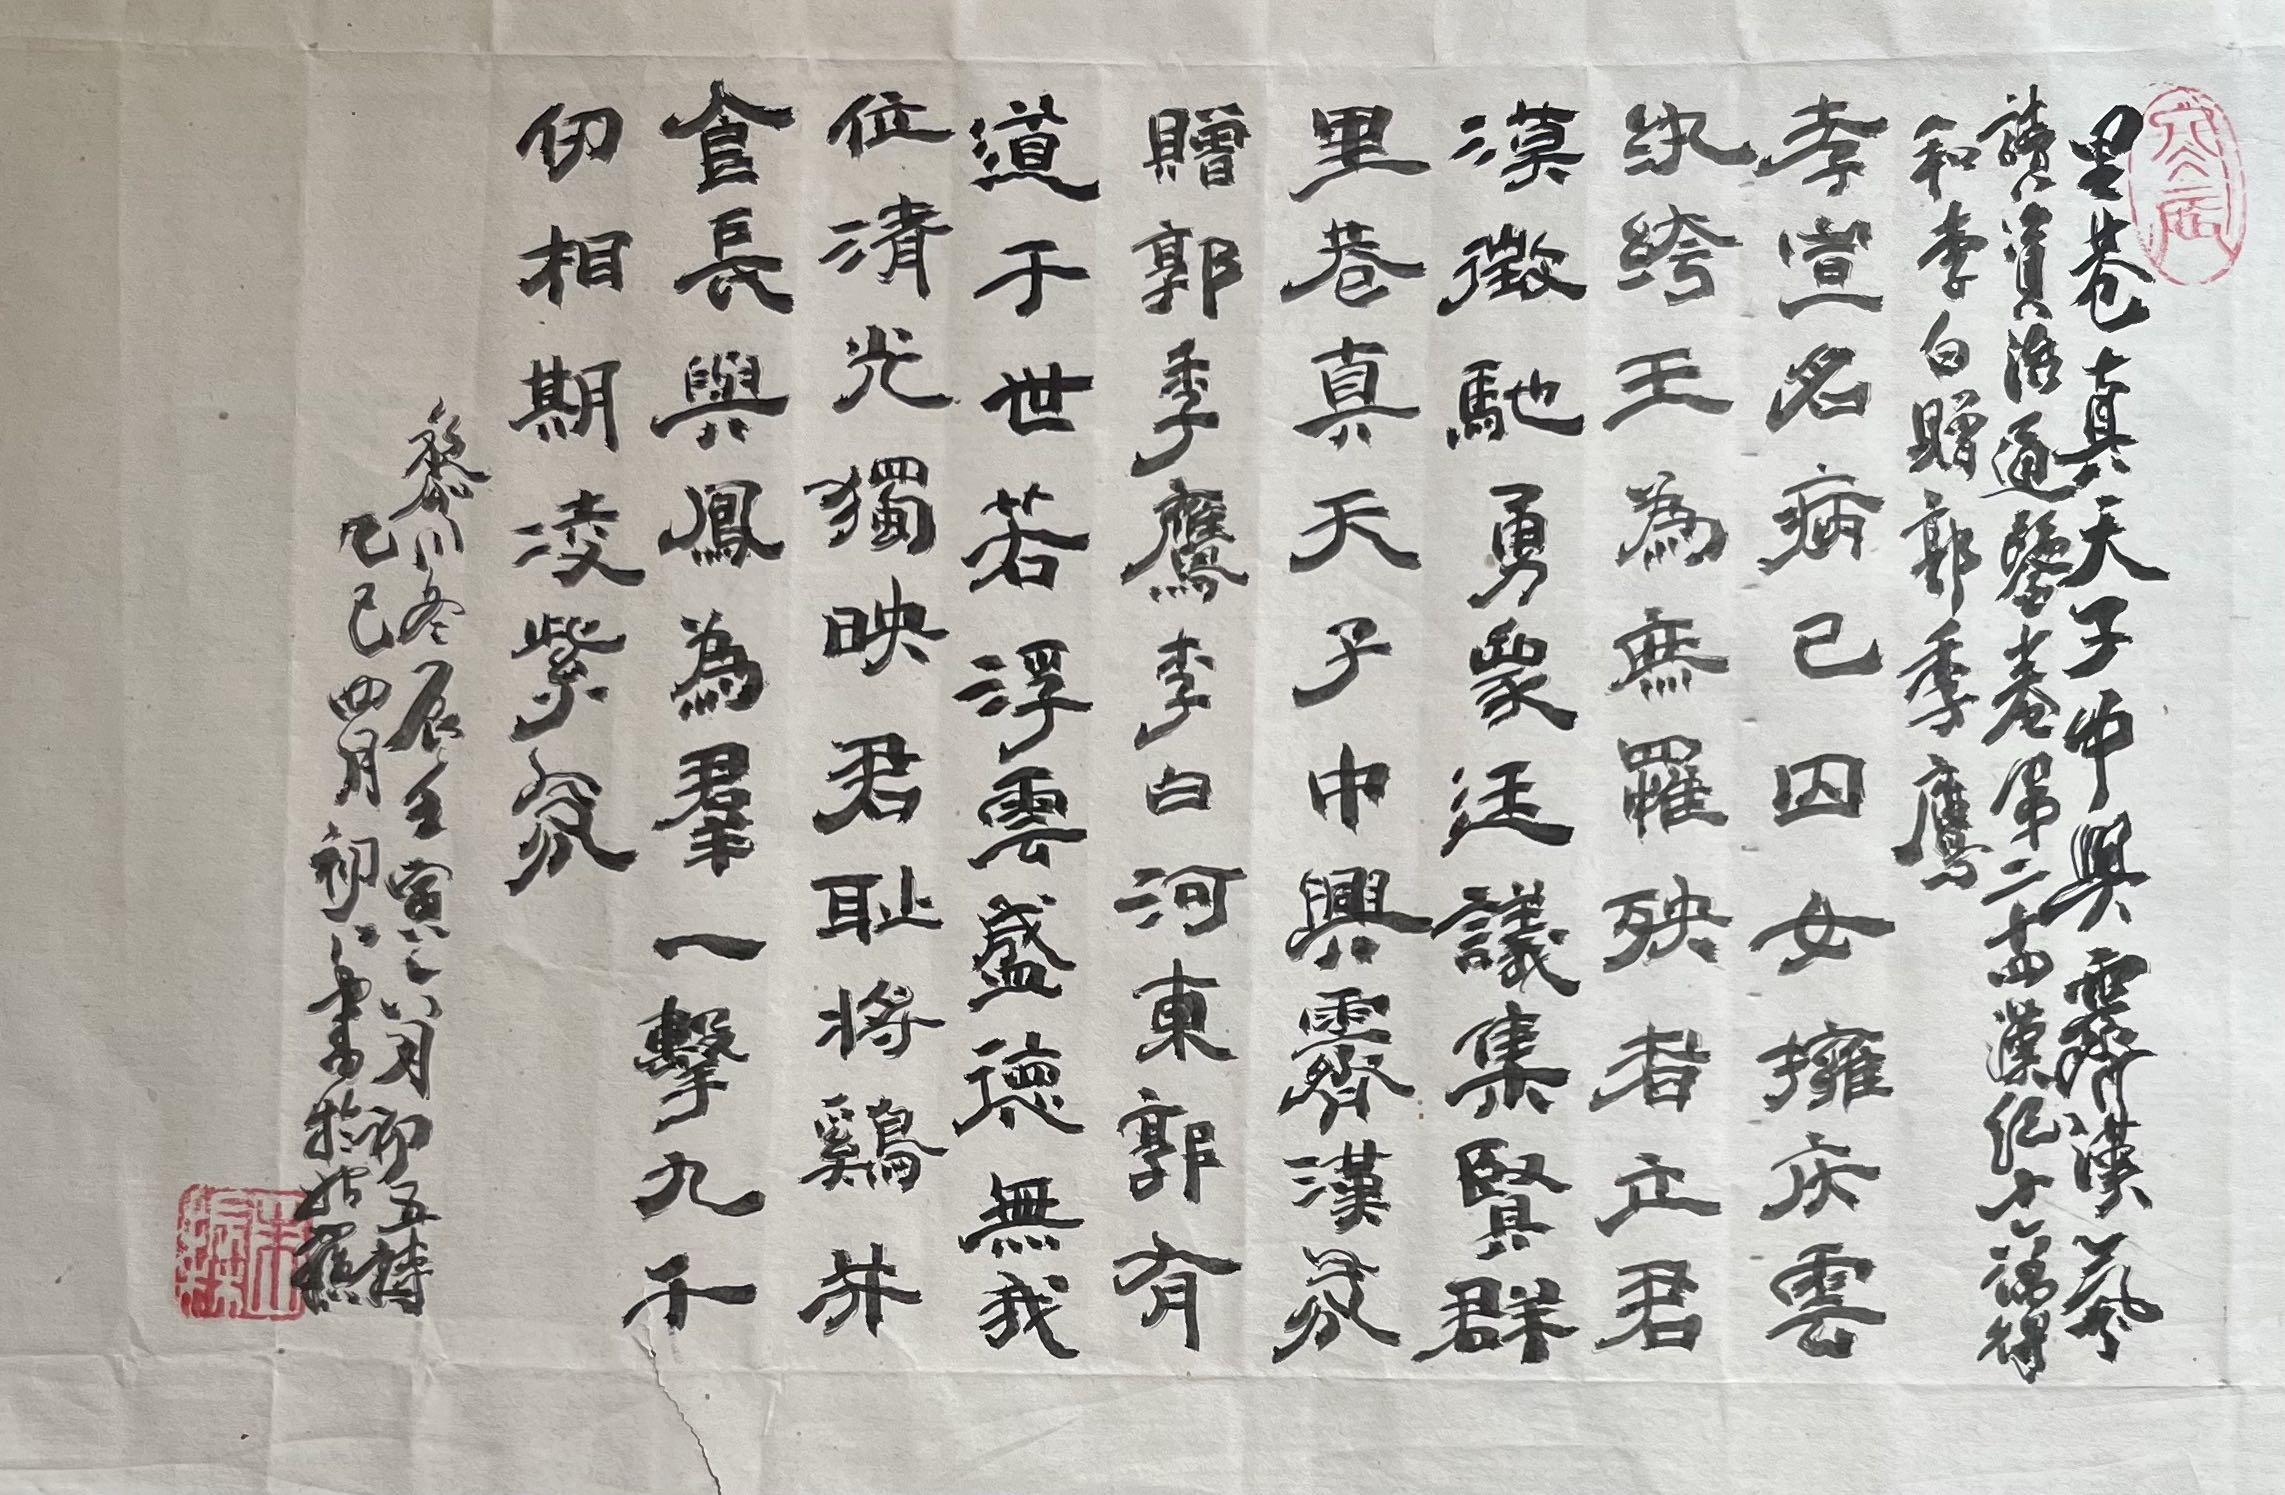 里巷真天子中興霽漢氛
讀資治通鑒卷第二十四漢紀十六偶得
和李白贈郭季鷹
李宣名病已囚女擁庆雲
紈絝王為庶羅殃者立君
漠徵馳勇眾廷議集賢群
里巷真天子中興霽漢氛
贈郭季鷹李白河東郭有
道于世若浮雲盛德無我
位清光獨映君耻将鷄并
食長與鳳為羣一擊九千
仞相期凌紫氛
黎川冬辰壬寅八月初五詩
乙巳四月初八書於姑蘇